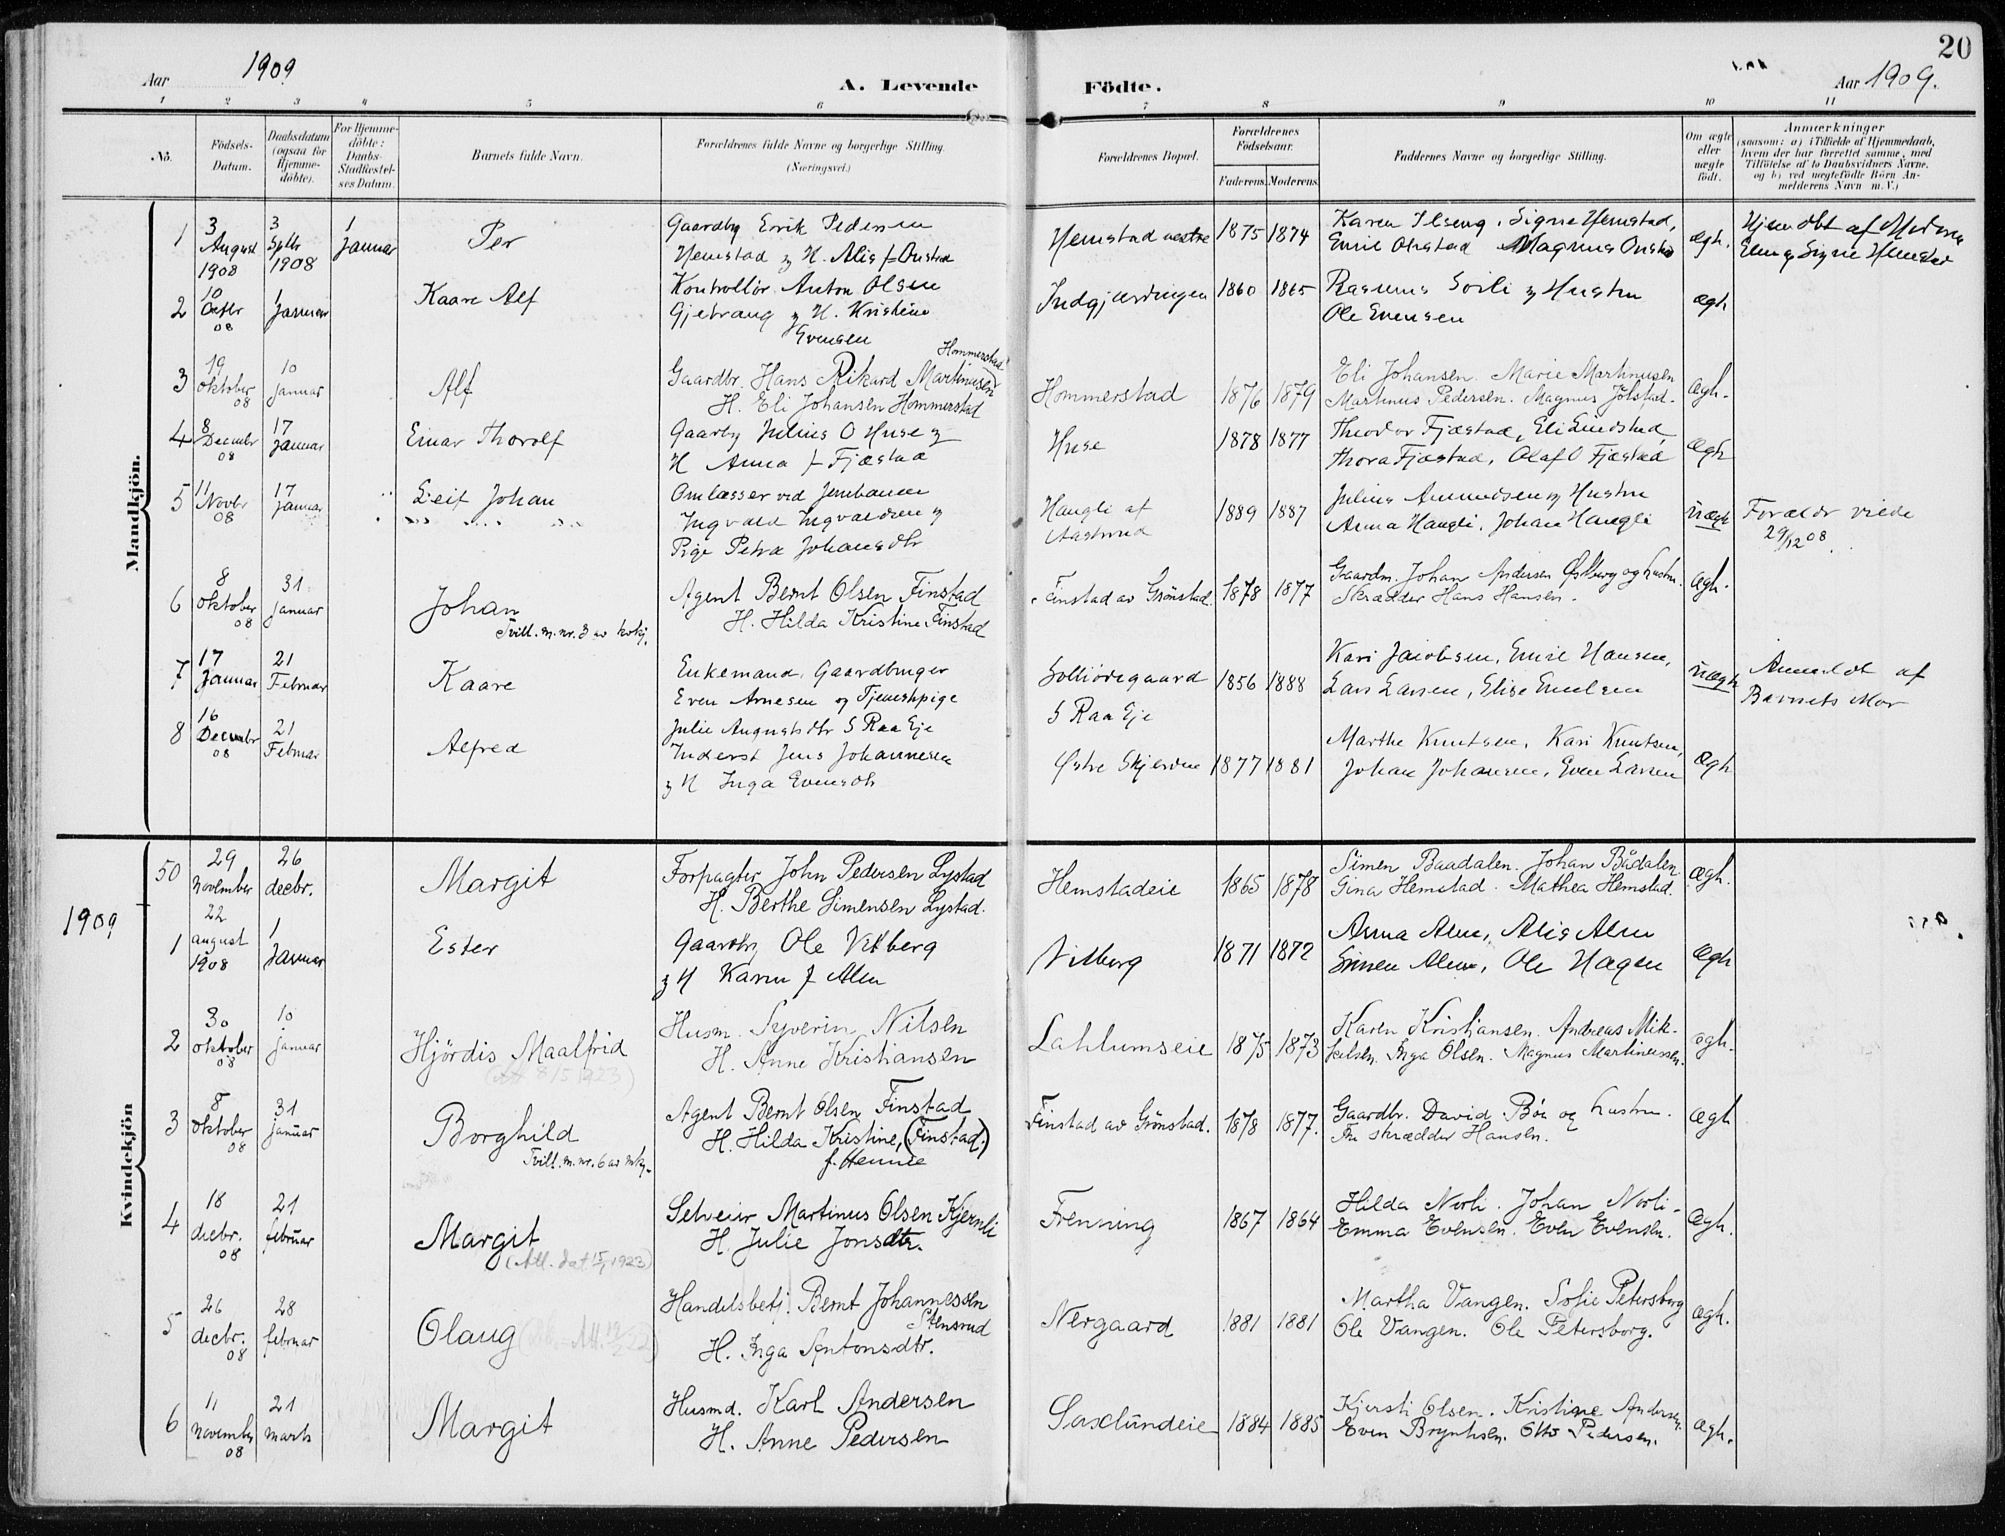 20
Aar 1909
A. Levende Födte.
Aar 1909.
1 2 3 4 5 6 7 8 9 10 11
No.
Födsels-
Datum.
Daabsdatum
(ogsaa for
Hjemme-
döbte).
For Hjemme-
döbte:
Daabs-
Stadfæstel-
ses Datum.
Barnets fulde Navn.
Forældrenes fulde Navne og borgerlige Stilling.
(Næringsvei.)
Forældrenes Bopæl.
Forældrenes
Födselsaar.
Faderens. Moderens.
Faddernes Navne og borgerlige Stilling.
Om ægte
eller
uægte
födt.
Anmærkninger
(saasom: a) i Tilfælde af Hjemmedaab,
hvem der har forrettet samme, med
Tilföielse af to Daabsvidners Navne,
og b) ved uægtefödte Börn An-
melderens Navn m. V.)
Mandkjön.
1
3
August
1908
3
Septbr
1908
1
Januar
Per
Gaardbr Erik Pedersen
Hemstad og H. Alis f Onstad
Hemstad vestre
1875 1874
Karen Ilseng, Signe Hemstad,
Emil Onstad Magnus Onstad
ægh.
Hjemdbt af
Signe Hemstad
2
10
Octbr
08
1
Januar
Kaare Alf
Kontrollör Anton Olsen
Gjetvang og H. Kristine
Evensen
Indgjærdingen
1860 1865
Rasmus Sorli og Hustru
Ole Evensen
ægh
3
19
oktober
08
10
januar
Alf
Hommerstad
Gaardbr. Hans Rikard Martinusen
H. Eli Johansen Hommerstad
Hommerstad
1876 1879
Eli Johansen. Marie Martinusen
Martinus Pedersen. Magnus Jölstad.
Ægh.
4
8
Decembr
08
17
Januar
Einar Thorolf
Gaardbr Julius O Huse og
H Anna f Fjæstad
Huse
1878 1877
Theodor Fjæstad, Eli Lindstad,
Thora Fjæstad, Olaf O Fjæstad
Ægh
5
11
Novbr
08
17
Januar
Leif Johan
Omlæsser ved Jernbanen
Ingvald Ingvaldsen og
Pige Petra Johansdtr
Haugli af
Aastrud
1889 1887
Julius Amundsen og Hustru
Anna Haugli, Johan Haugli
uægh
Forældr viede
29/12 08
6
8
oktober
08
31
januar
Johan
Tvill. m. nr. 3 av kvkj.
Agent Bernt Olsen Finstad
H. Hilda Kristine Finstad
Finstad av Grönstad
1878 1877
Gaardm. Johan Andersen Østberg og hustru.
Skrædder Hans Hansen.
Ægh.
7
17
Januar
21
Februar
Kaare
Enkemand, Gaardbruger
Even Arnesen og Tjenestpige
Julie Augustsdtr S Raa Eje
S Raa Eje
1856 1888
Kari Jacobsen, Emil Hansen,
Lars Larsen, Elise Emilsen
uægh
Anmeldt af
Barnets Mor
8
16
Decembr
08
21
Februar
Alfred
Inderst Jens Johannesen
og H Inga Evensdtr
Østre Skjerden
1877 1881
Marthe Knutsen, Kari Knutsen,
Johan Johansen, Even Larsen
Ægh
Kvindekjön
50
29
november
26
decbr.
Margit
Forpagter John Pedersen Lystad
H. Berthe Simensen Lystad.
Hemstadeie
1865 1878
Simen Baadalen. Johan Bådalen
Gina Hemstad. Mathea Hemstad.
Ægh.
1909
1
22
august
1908
1
Januar
Ester
Gaardbr, Ole Vitberg
og H Karen f Alm
Vitberg
1871 1872
Anna Alm, Alis Alm
Simen Alm, Ole Hagen
Ægh
2
30
oktober
08
10
januar
Hjördis Maalfrid
(Att 8/5 1923)
Husm. Syverin Nilsen
H. Anne Kristiansen
Lahlumseie
1875 1873
Karen Kristjansen. Andreas Mik-
kelsen. Inga Olsen. Magnus Martinussen.
ægh.
3
8
oktober
08
31
januar
Borghild
Tvill. m. nr. 6 av mkj.
Agent Bernt Olsen Finstad
H. Hilda Kristine, (Finstad.)
f. Hennie
Finstad av Grönstad.
1878 1877.
Gaardbr. David Böe og hustru.
Fru skrædder Hansen.
Ægh
4
18
decbr.
08
21
februar
Margit
(Att. dat 15/1 1923)
Selveier Martinus Olsen Kjernli
H. Julie Jonsdtr.
Frenning
1867 1864
Hilda Norli. Johan Norli.
Emma Evensen. Even Evensen.
Ægh.
5
26
decbr.
08
28
februar
Olaug
Handelsbetj. Bernt Johannessen
Stensrud
H. Inga Antonsdtr.
Nergaard
1881 1881
Martha Vangen. Sofie Petersborg
Ole Vangen. Ole Petersborg.
Ægh.
6
11
november
08
21
marts
Margit
Husmd. Karl Andersen
H. Anne Pedersen
Saxlundeie
1884 1885
Kjersti Olsen. Kristine Andersen.
Even Brynhsen. Otto Pedersen.
Ægh.